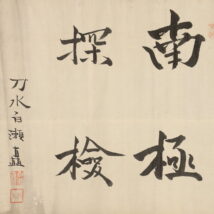 南極
探検
刀水白瀬矗